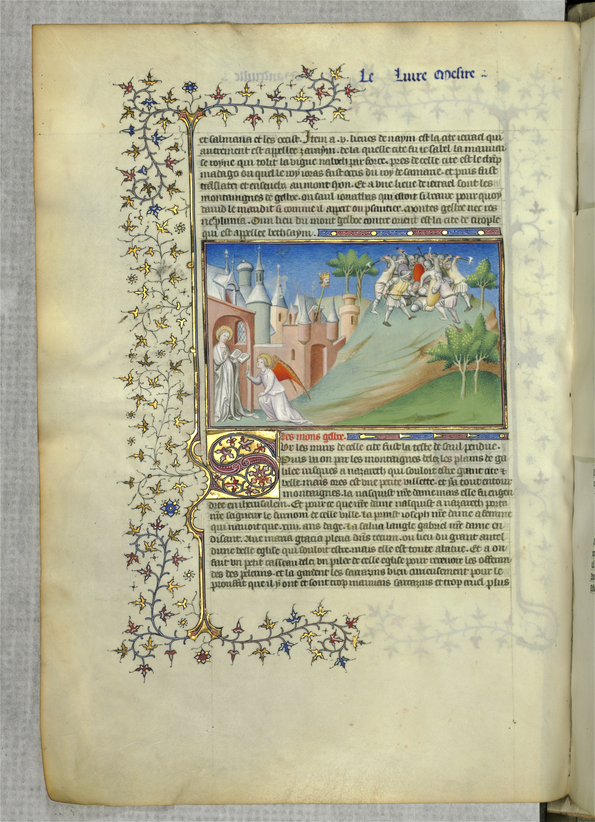 Le Liure Messire
et salmana et les occist. Item a .v. lieues de naym est la cite iezrael qui
autrement est appellee zaraym. de la quelle cite fu iesabel la mauuai
se royne qui tolit la vigne naboth par force. pres de celle cite est le champ
magedo ou quel le roy iozias fust occis du roy de samarie. et puis fust
translatez et enseueliz au mont syon. Et a vne lieue de iezrael sont les
montaignes de gelboe. ou saul ionathas qui estoit si beaux pour quoy
dauid le maudist si comme il appert ou psautier. montes gelboe nec ros
nec pluuia. Dun lieu du mont gelboe contre orient est la cite de cirople
qui est appellee bethsaym.
Des mons gelboe.
Vr les murs de celle cite fust la teste de saul pendue.
Puis va on par les montaignes dela les plains de ga
lilee iusques a nazareth qui souloit estre grant cite et
belle. mais mes est vne petite villette. et sa tout entour
montaignes. la nasquist nostre dame mais elle fu engen
dree en iherusalem. Et pour ce que nostre dame nasquist a nazareth porta
nostre seigneur le surnom de celle ville. la prinst ioseph nostre dame a femme
qui nauoit que .xiiii. ans dage. la salua langle gabriel nostre dame en
disant. Aue maria gracia plena dominus tecum. ou lieu du grant autel
dune belle eglise qui souloit estre. mais elle est toute abatue. Et a on
fait vn petit casseau dela vn piler de celle eglise pour receuoir les offeran
des des pelerins. et la gardent les sarrazins bien curieusement pour le
prouffit que il y ont et sont trop mauuais sarrazins et trop cruel plus